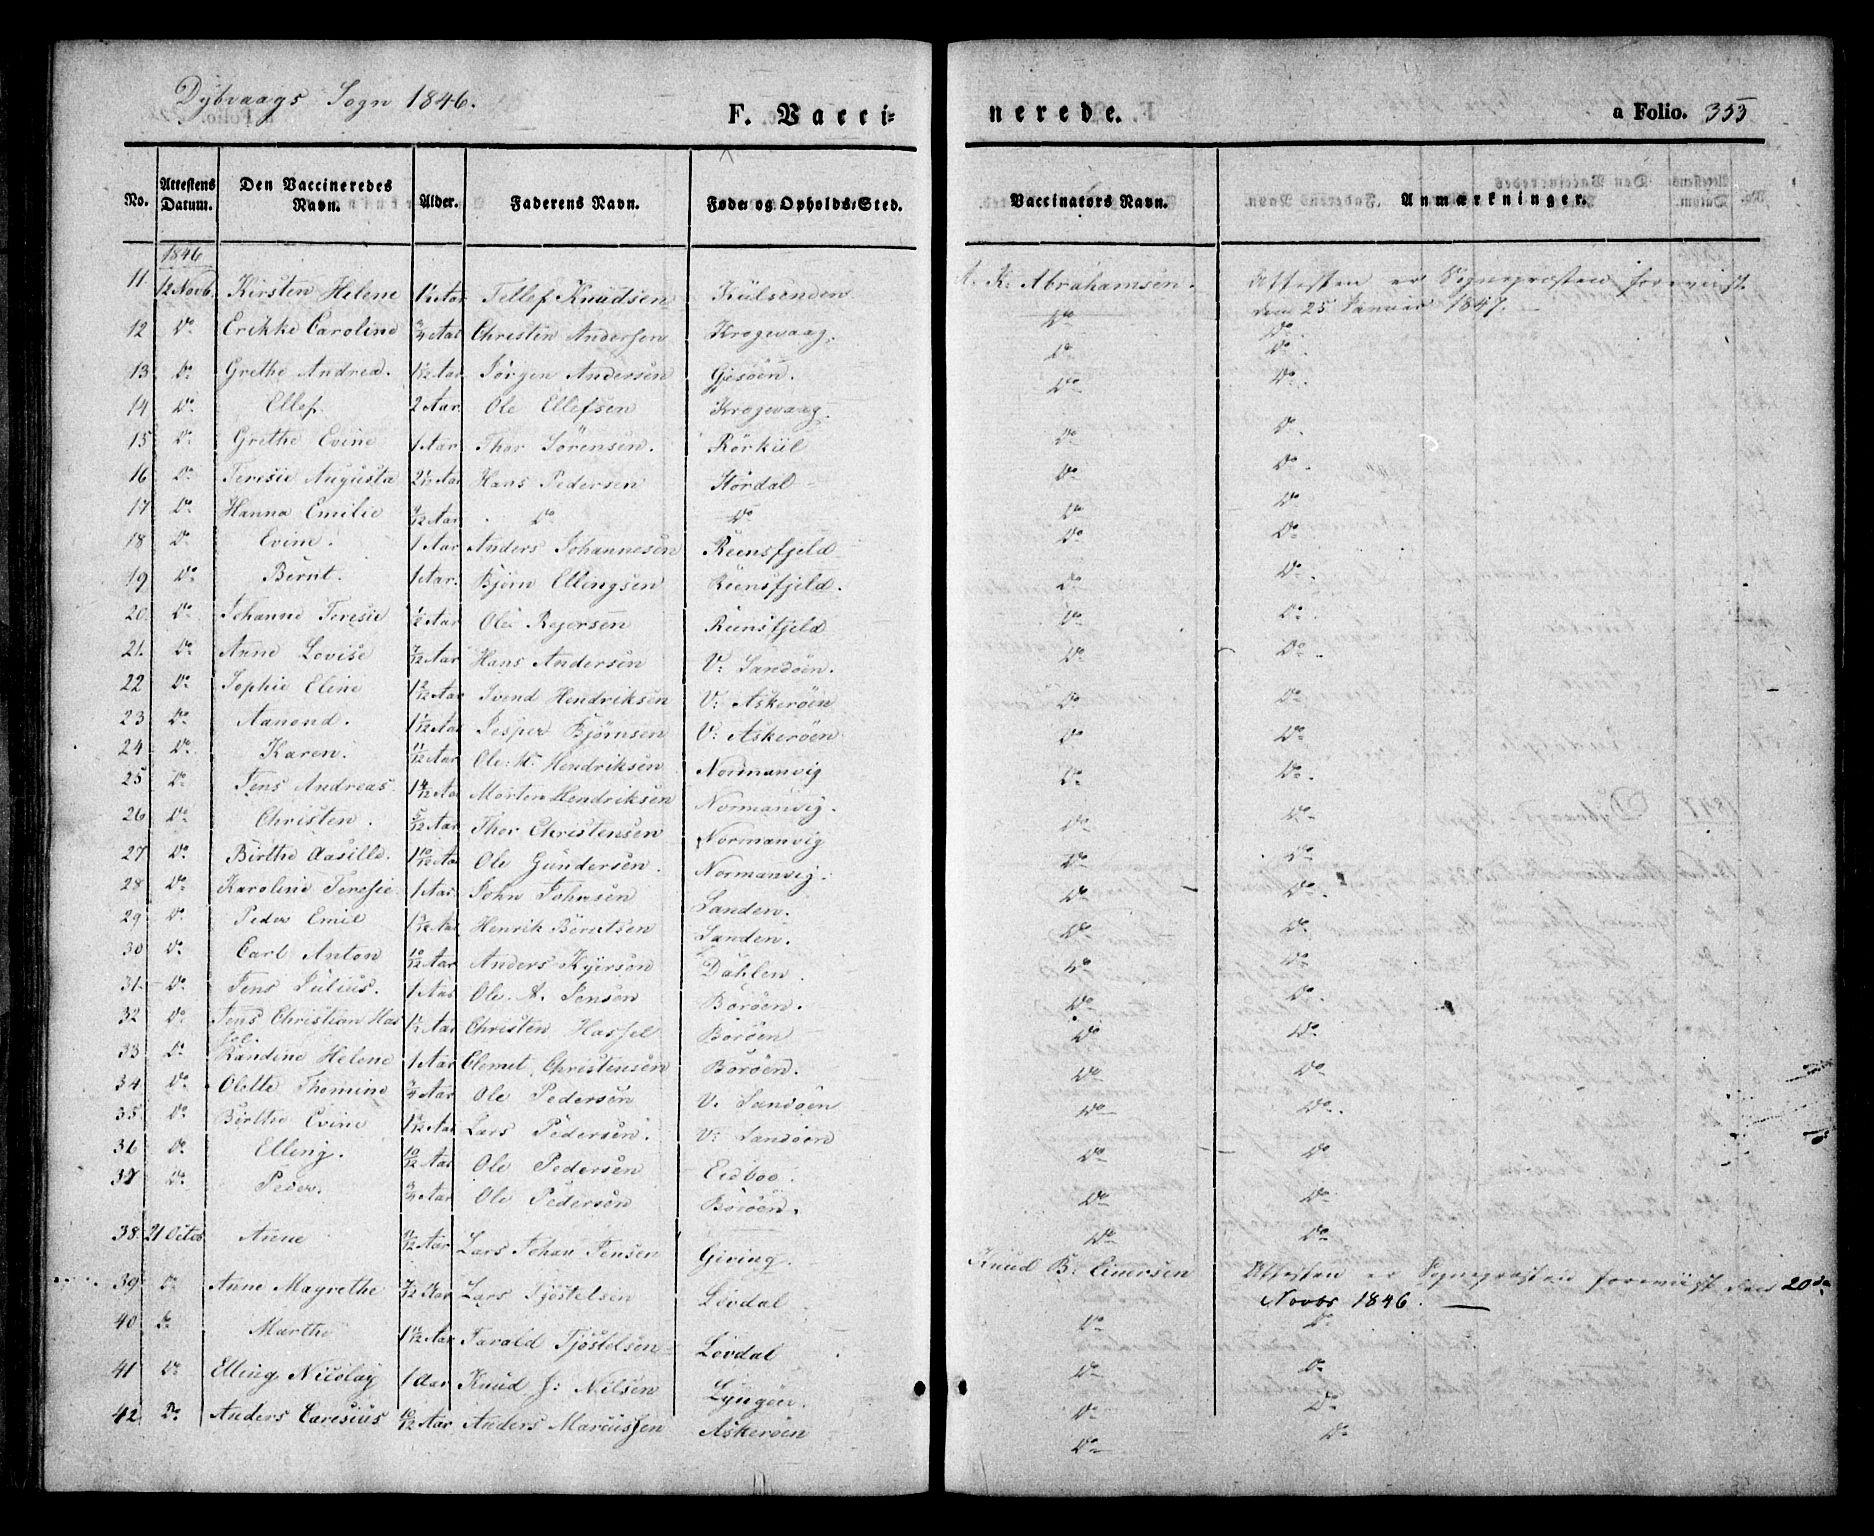 Dybvaags Sogn 1846.
F. Vaccinerede. a Folio. 353
No. Attestens Datum. Den Vaccineredes Navn. Alder. Faderens Navn. Føde- og Opholds-Sted. Vaccinators Navn. Anmærkninger.
1846
11. 12 Novb. Kirsten Helene Tellef Knudsen Külsenden A. K. Abrahamsen. Attesten er Sognepræsten foreviist
den 25 Januar 1847.
12 Do Erikke Caroline 3/4 Aar Christen Andersen Krogevaag. Do Do
13 Do Grethe Andrea. Jørgen Andersen Gjesöen. Do Do
14 Do Ellef. 2 Aar Ole Ellefsen Krogevaag. Do Do
15 Do Grethe Evine 1 Aar Thor Sörensen. Rörkiil Do Do
16 Do Teresie Augusta 2 1/2 Aar Hans Pedersen Stordal Do Do
17 Do Hanna Emilie Do Do Do Do
18 Do Evine. 1 Aar Anders Johannesen Reensfjeld Do Do
19 Do Bernt. 1 Aar. Bjørn Ellingsen Reensfjeld. Do Do
20 Do Johanne Teresie 1/2 Aar Ole Rejersen Reensfjeld Do Do
21. Do Anne Lovise 7/12 Aar Hans Andersen V: Sandöen. Do Do
22 Do Sophie Eline Svend Hendriksen V: Askeröen Do Do
23 Do Aanond. Jesper Bjørnsen V: Askeröen Do Do
24 Do Karen. 11/12 Aar Ole Hendriksen Normanvig Do Do
25 Do Jens Andreas. Morten Hendriksen Normanvig. Do Do
26 Do Christen. 5/12 Aar Thor Christensen Normanvig Do Do
27 Do Birthe Aasille. 1 10/12 Aar Ole Gundersen. Normanvig. Do Do
28 Do Karoline Teresie. 1 Aar John Johnsen Sanden. Do Do
29 Do Peder Emil Henrik Berntsen Sanden. Do Do
30 Do Carl Anton 10/12 Aar Anders Kjersen Dahlen. Do Do
31. Do Jens Julius. 1 Aar Ole A. Jensen Boröen. Do Do
32 Do Jens Christian Has 1 1/2 Aar Christen Hassel Boröen Do Do
sel.
33 Do Randine Helene 1 Aar Clemet Christensen Boröen. Do Do
34 Do Olette Thomine 3/4 Aar Ole Pedersen V. Sandöen Do Do
35 Do Birthe Evine Lars Pedersen. V: Sandöen Do Do
36 Do Elling. 10/12 Aar Ole Pedersen Eidboe. Do Do
37 Do Peder. 3/4 Aar Ole Pedersen Boröen. Do Do
38. 21 Octob. Anne Lars Johan Jensen Giving. Knud B: Einersen Attesten er Sognepræsten foreviist den 20de
Novbr 1846.
39 Do Anne Magrethe Lars Tjöstelsen Lövdal Do Do
40 Do Marthe 1 11/12 Aar Tarald Tjöstelsen Lövdal Do Do
41 Do Elling Nicolay 1 Aar Knud J: Nilsen Lyngöer. Do Do
42. Do Anders Caresius 10/12 Aar Anders Marcussen Askeröen Do Do